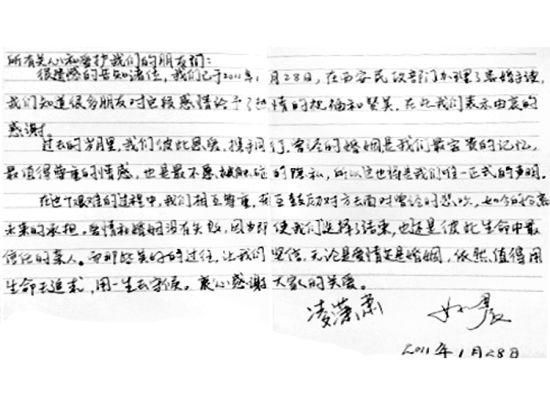 所有关心和爱护我们的朋友们：
很遗憾的告知诸位，我们已于2011年1月28日，在西安民政部门办理了离婚手续，
我们知道很多朋友对这段感情给予了热情的祝福和赞美，在此我们表示由衷的
感谢。
过去的岁月里，我们彼此恩爱，携手同行，曾经的婚姻是我们最宝贵的记忆，
最值得尊重的情感，也是最不愿被触碰的隐私，所以这也将是我们唯一正式的声明。
在这个艰难的过程中，我们相互尊重，互鼓励对方去面对曾经的悲欢，如今的分离
未来的承担。爱情和婚姻没有失败，因为即使我们选择了结束，也还是彼此生命中最
信任的亲人。而那些美好的过往，让我们坚信，无论是爱情还是婚姻，依然值得用
生命去追求，用一生去守候。衷心感谢大家的关爱。
凌潇肃 姚晨
2011年1月28日